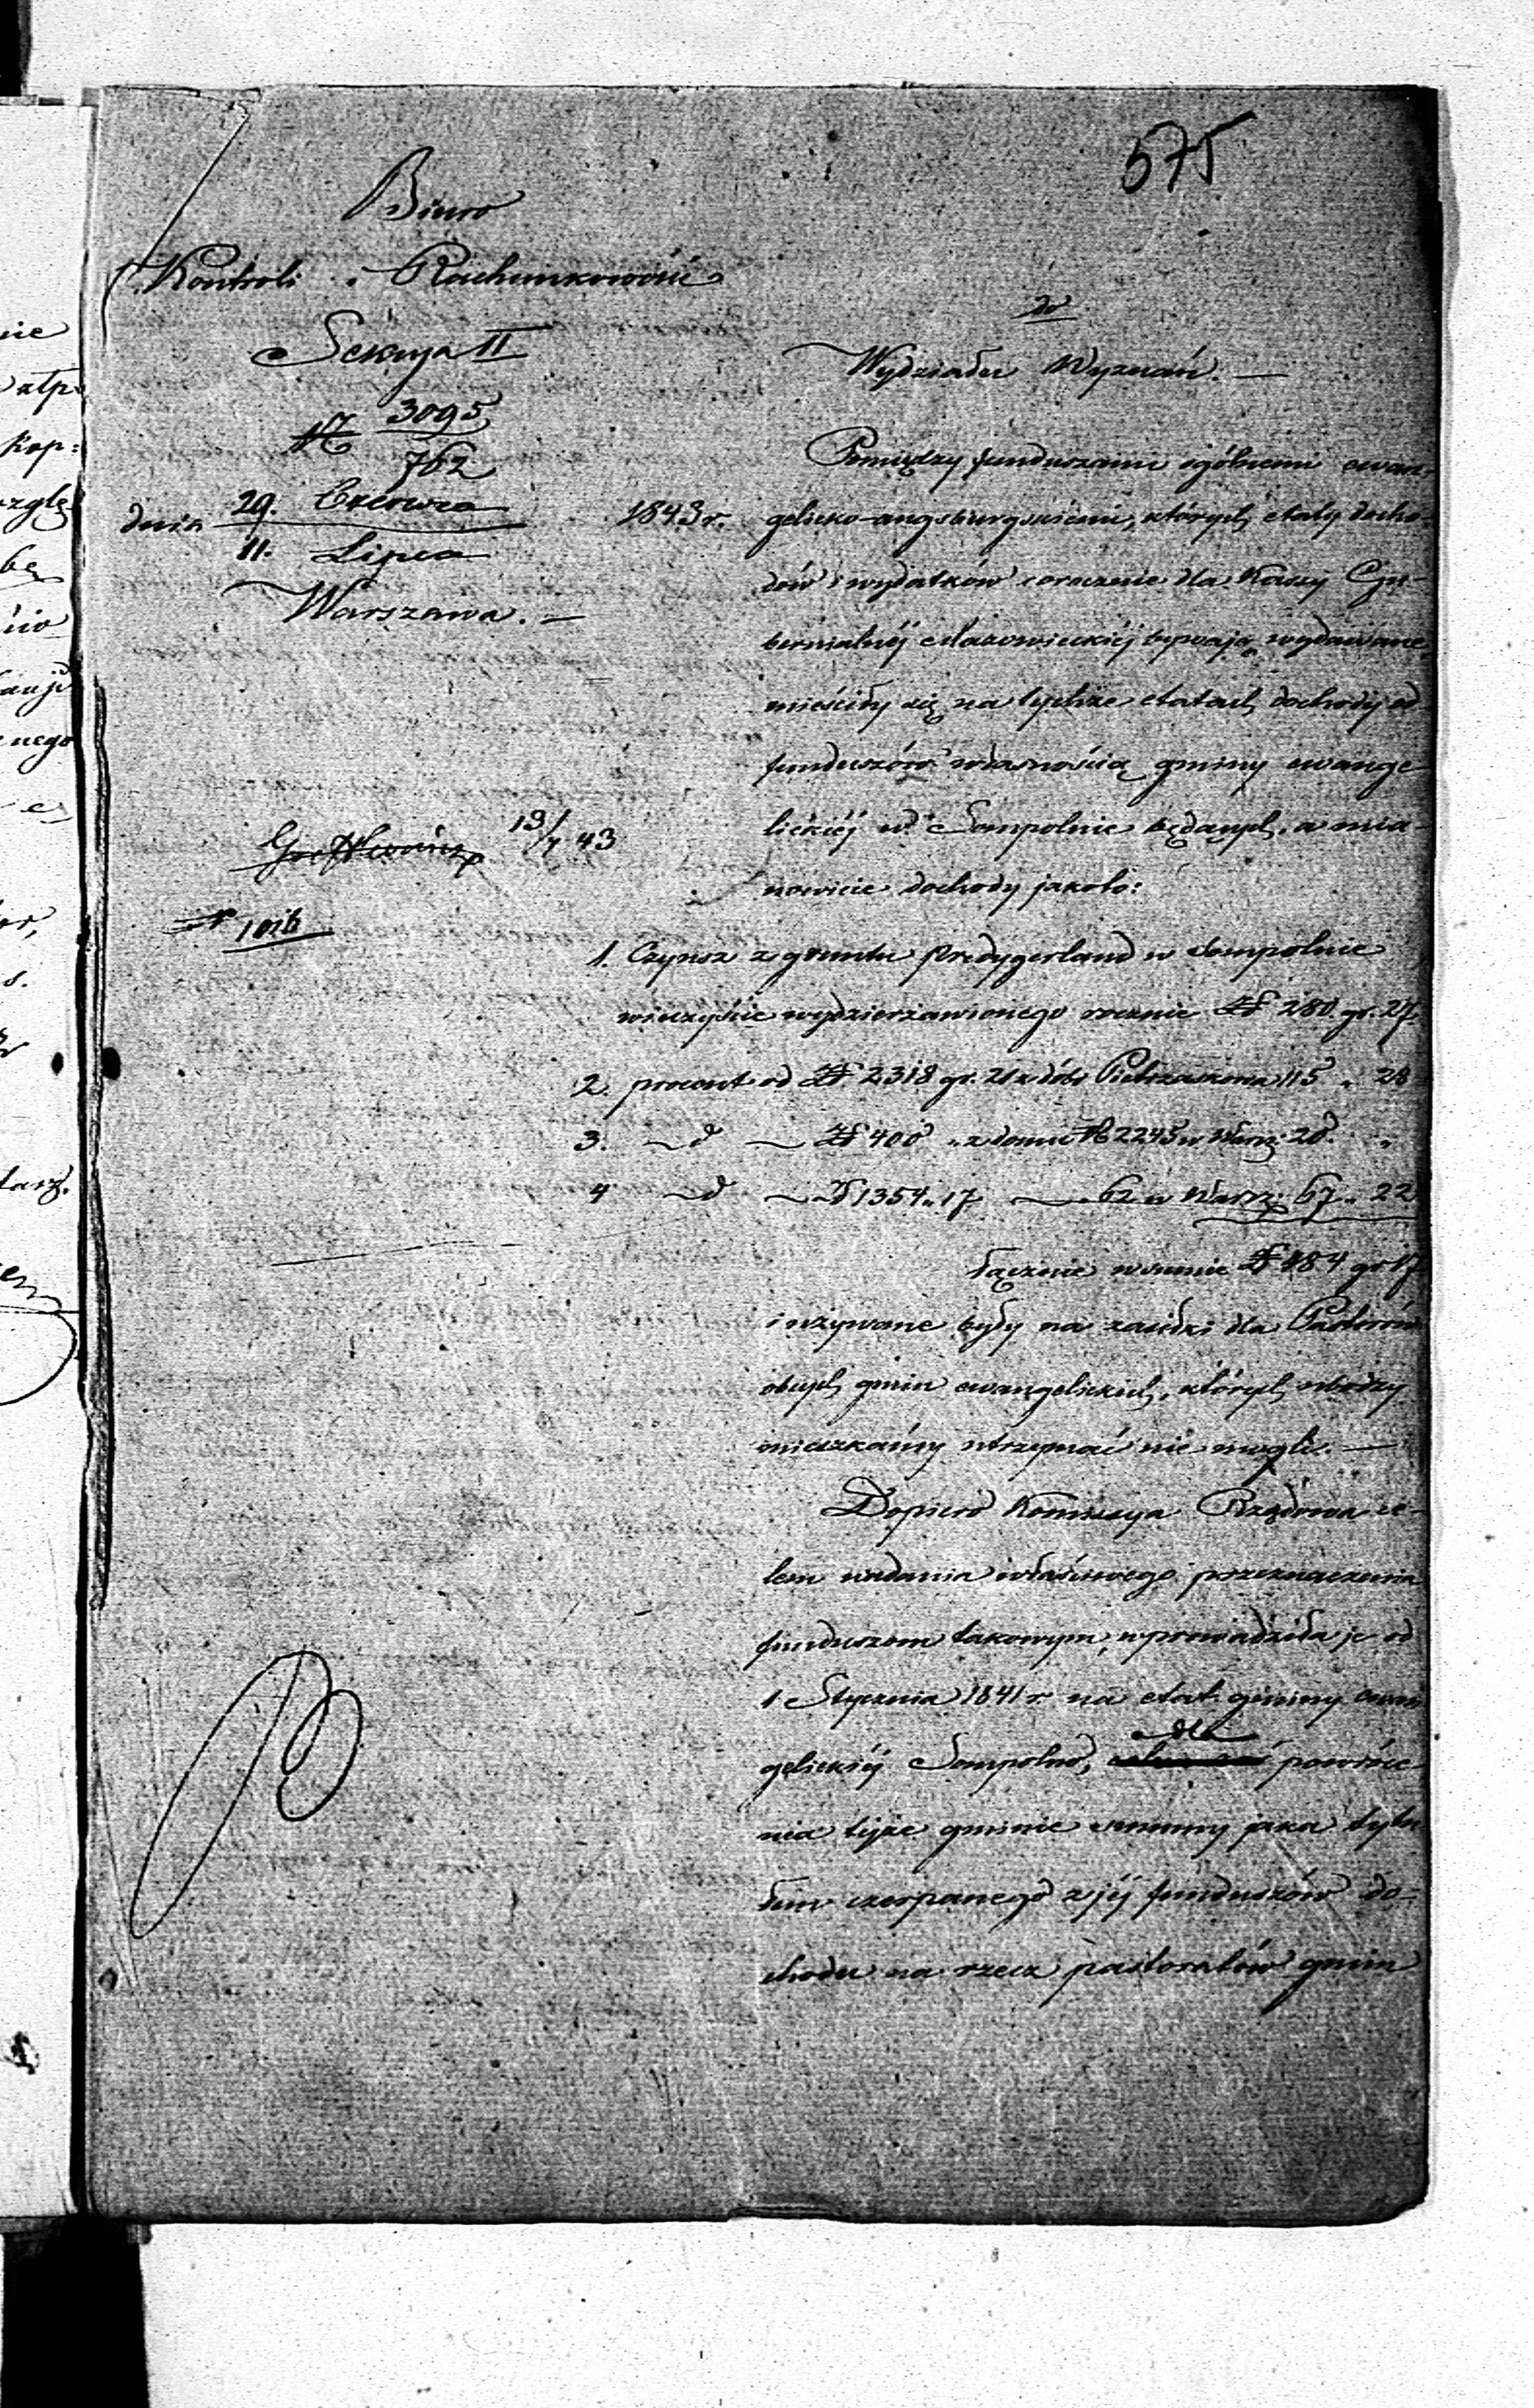 575
Biuro
Kontroli i Rachunkowości
Sekcya II
№ 3095
762
dnia 29. Czerwca 1843 r.
11. Lipca
Warszawa. —
13/7 43
№ 1016
do
Wydziału Wyznań. —
Pomiędzy funduszami ogólnemi ewan-
gelicko-augsburgskiemi, których etaty docho-
dów i wydatków corocznie dla Kassy Gu-
bernialnéj Mazowieckiéj bywają wydawane,
mieściły się na tychże etatach dochody od
funduszów własnością gminy ewange-
lickiéj w Sompolnie będących, a mia-
nowicie dochody jakoto:
1. Czynsz z gruntu Predygerland w Sompolnie
wieczyście wydzierżawionego rocznie Zł 280 gr. 27
2. procent od Zł 2318 gr. 21 z dóbr Pietraszkowa 115 „ 28
3. — d — Zł 400 „ z domu № 2245 w Warsz: 20. „
4 — d — Zł 1354 „ 17 — 62 w Warsz: 67 „ 22
łącznie w sumie Zł 484 gr 17
i używane były na zasiłki dla Pastorów
obcych gmin ewangelickich, których ubodzy
mieszkańcy utrzymać nie mogli. —
Dopiero Kommissya Rządowa ce-
lem nadania właściwego przeznaczenia
funduszom takowym, wprowadziła je od
1 Stycznia 1841 r. na etat gminy ewan
gelickiéj Sompolno, dla powróce-
nia téjże gminie summy jaka tytu
łem czerpanego z jéj funduszów do-
chodu na rzecz pastoratów gmin